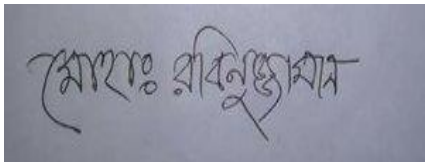 মোহাঃ রবিনুজ্জামান